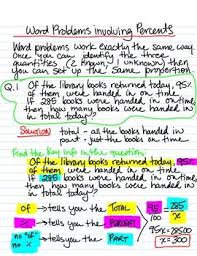 Word Problems involving Percents
Word problems work exactly the same way.
Once you can identify the three
quantities (2 known, 1 unknown) then
you can set up the same proportion.
Q.1 Of the library books returned today, 95%
of them were handed in on time.
If 285 books were handed in on time,
then how many books were handed
in total today?
Solution total - all the books handed in
part - just the books on time
Find the key info in the question
Of the library books returned today, 95%
of them were handed in on time. If
285 books were handed in on time,
then how many books were handed
in total today?
of → tells you the TOTAL
% → tells you the PERCENT
no "of" no % → tells you the PART
95 = 285
100 x
95x = 28500
x = 300